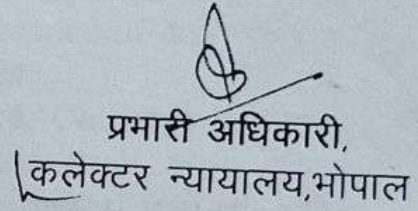 प्रभारी अधिकारी,
कलेक्टर न्यायालय,भोपाल